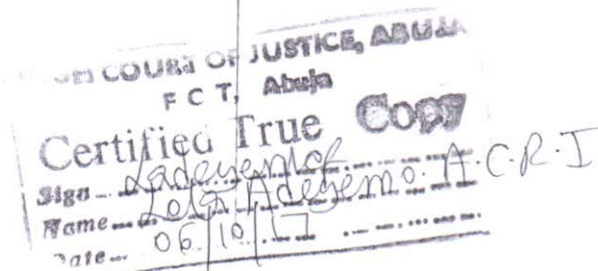 COURT OF JUSTICE, ABUJA
F C T, Abuja
Certified True Copy
Sign
Name Lola Adeyemo. A.C.R.I
Date 06/10/17